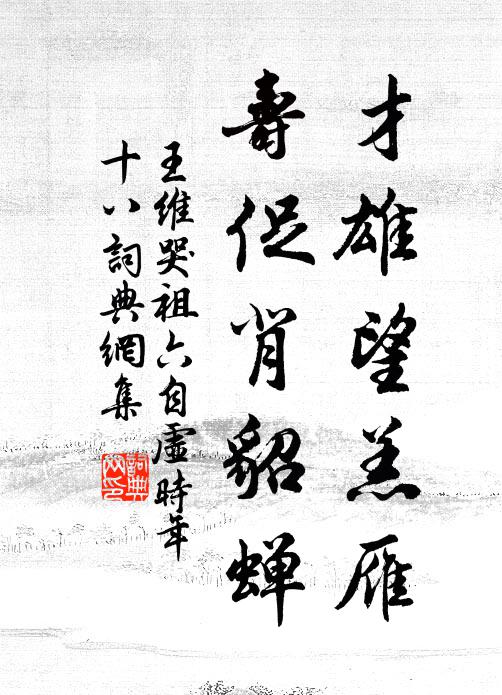 才雄望羔雁
壽促背貂蟬
王維哭祖六自虛時年
十八詞典網集
詞典網印